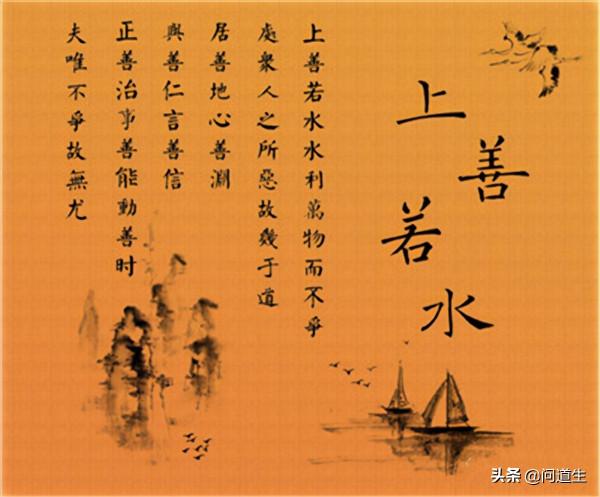 上善若水
上善若水水利萬物而不爭
處衆人之所惡故幾于道
居善地心善淵
與善仁言善信
正善治事善能動善时
夫唯不爭故無尤
头条 @问道生